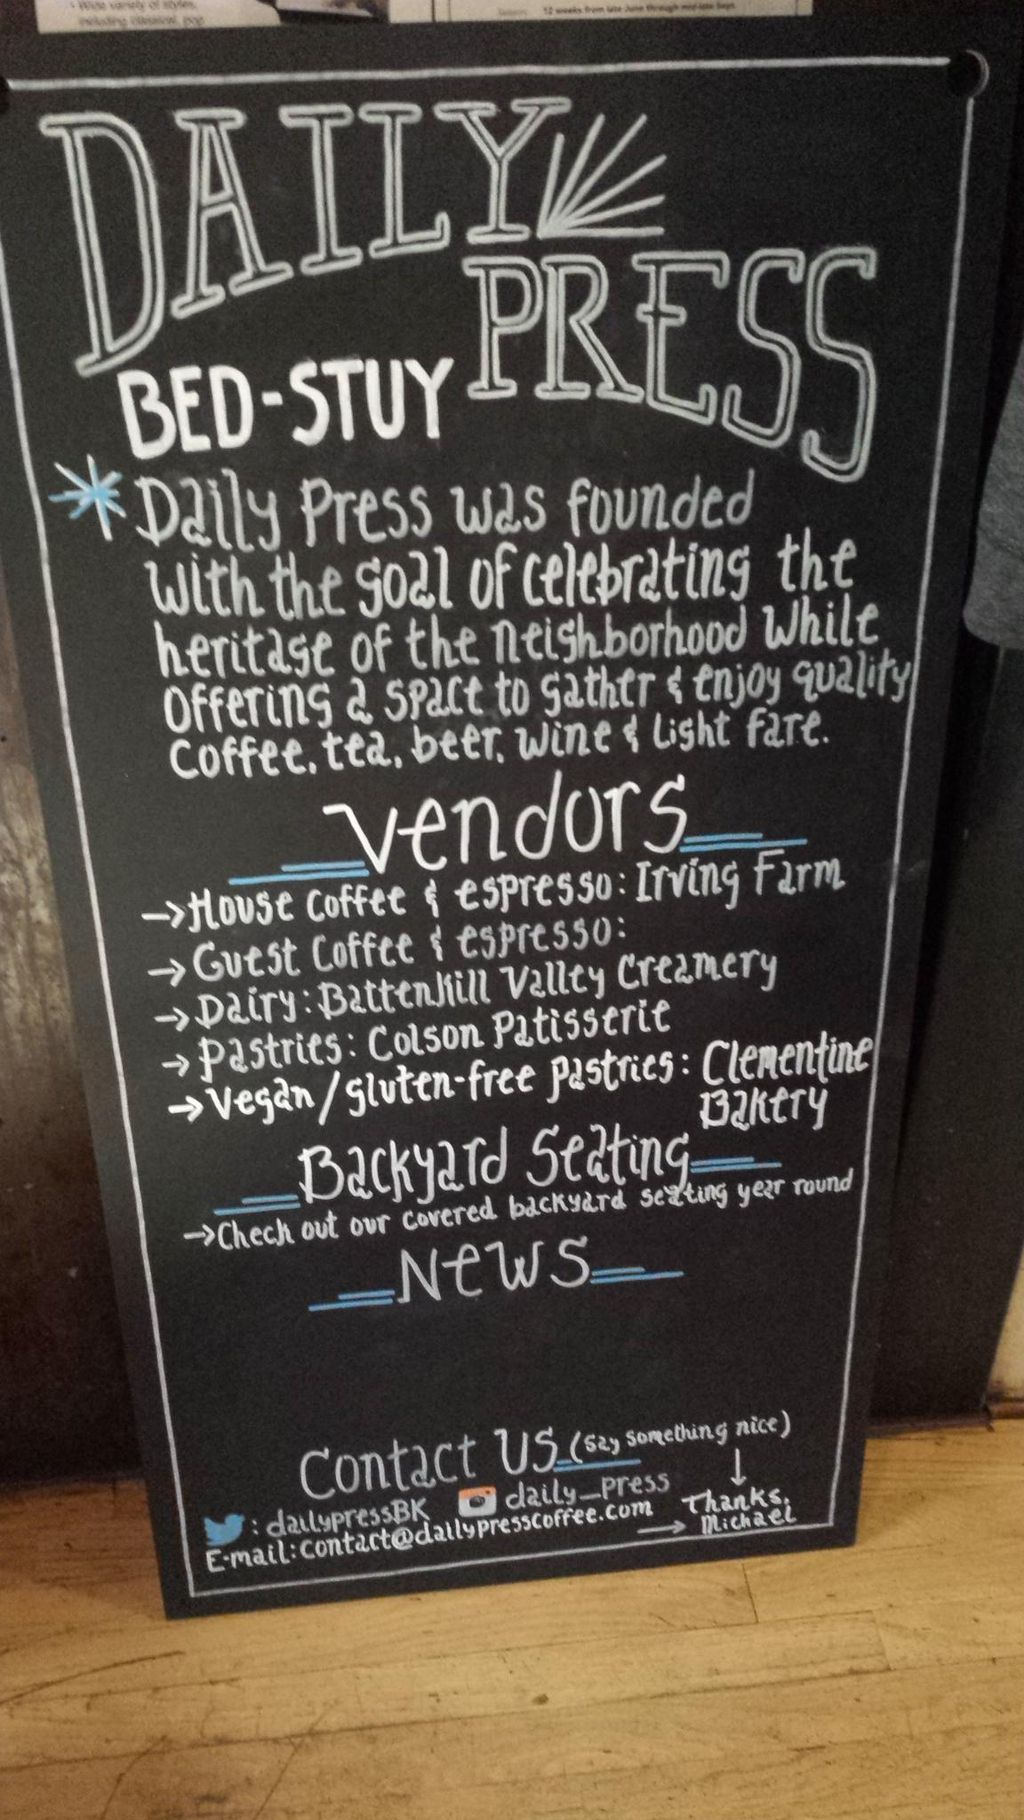 • Wide variety of styles,
including classical, pop
12 weeks from late June through mid-late Sept.
DAILY
PRESS
BED-STUY
Daily Press was founded
with the goal of celebrating the
heritage of the neighborhood while
offering a space to gather & enjoy quality
coffee, tea, beer, wine & light fare.
Vendors
→House coffee & espresso: Irving Farm
→Guest Coffee & espresso:
→Dairy: Battenkill Valley Creamery
→Pastries: Colson Patisserie
→Vegan/gluten-free pastries: Clementine
Bakery
Backyard Seating
→Check out our covered backyard seating year round
News
Contact Us (say something nice)
: dailypressBK daily_press
E-mail: contact@dailypresscoffee.com → Thanks,
Michael